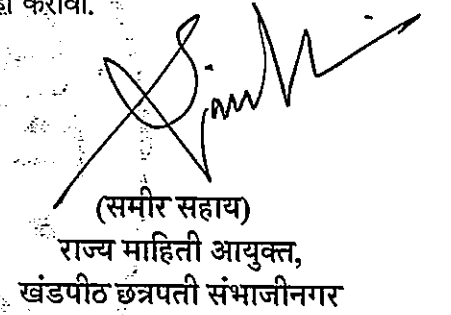 करावी.
(समीर सहाय)
राज्य माहिती आयुक्त,
खंडपीठ छत्रपती संभाजीनगर